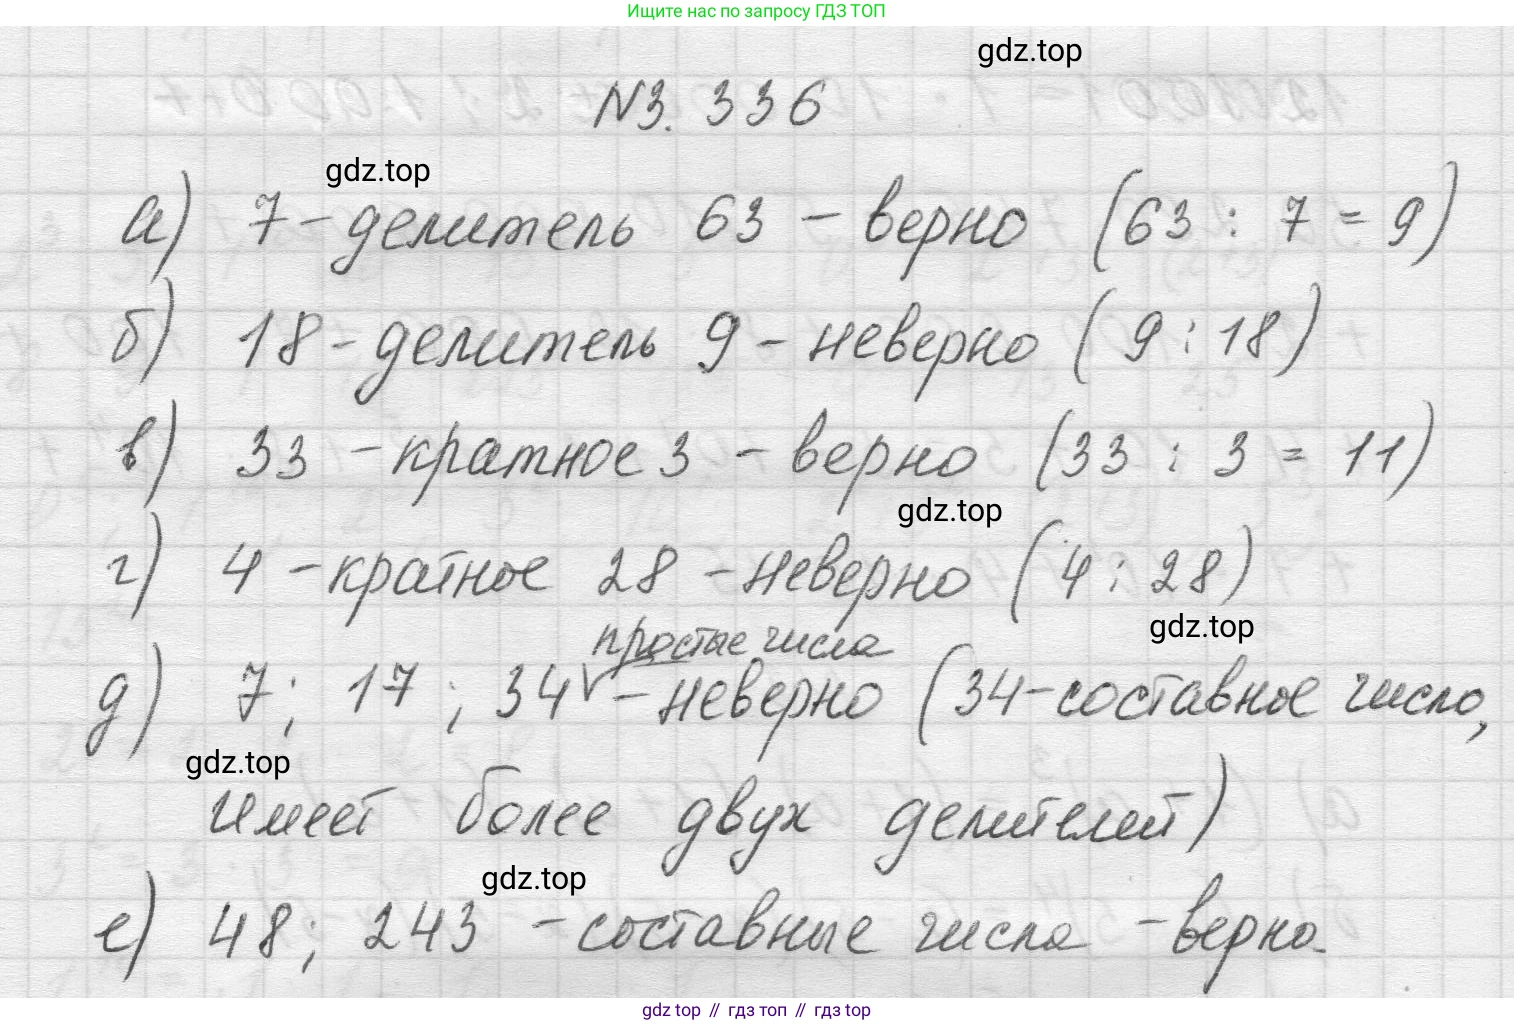 Ищите нас по запросу ГДЗ ТОП
gdz.top
№3. 336
gdz.top
а) 7 - делитель 63 - верно (63 : 7 = 9)
б) 18 - делитель 9 - неверно (9 : 18)
в) 33 - кратное 3 - верно (33 : 3 = 11)
gdz.top
г) 4 - кратное 28 - неверно (4 : 28)
gdz.top
простые числа
д) 7; 17; 34 √ - неверно (34 - составное число,
gdz.top
имеет более двух делителей)
gdz.top
е) 48; 243 - составные числа - верно.
gdz top // гдз топ // гдз top